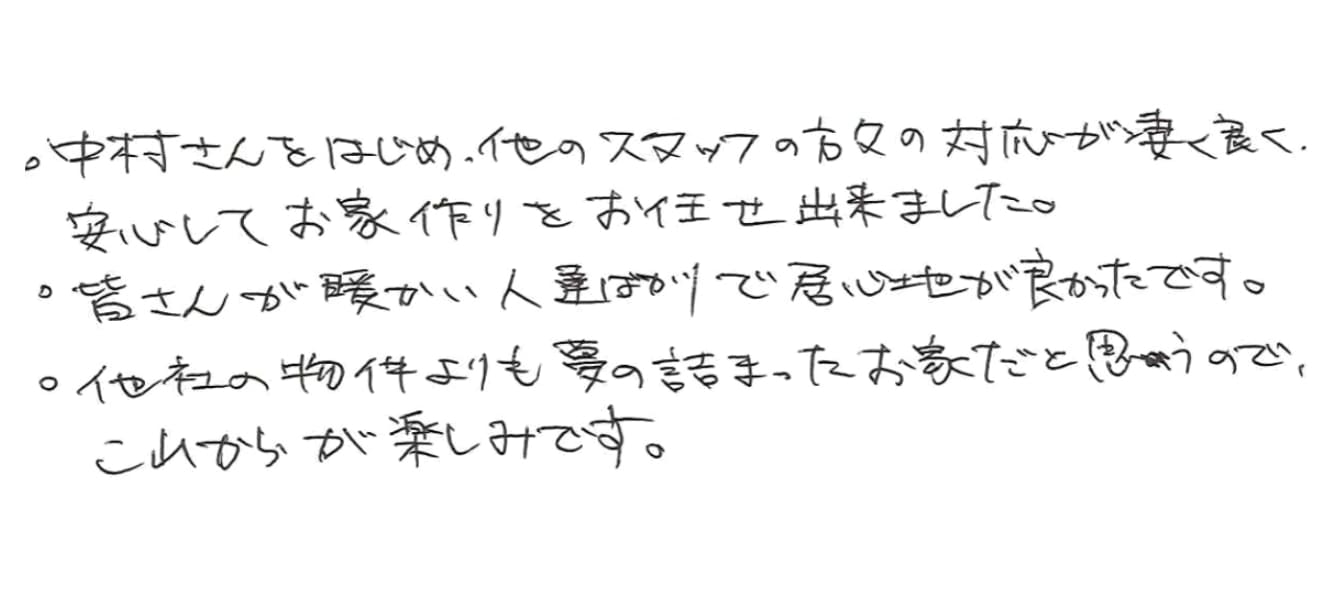 。中村さんをはじめ、他のスタッフの方々の対応が凄く良く、
安心してお家作りをお任せ出来ました。
。皆さんが暖かい人達ばかりで居心地が良かったです。
。他社の物件よりも夢の詰まったお家だと思うので、
これからが楽しみです。